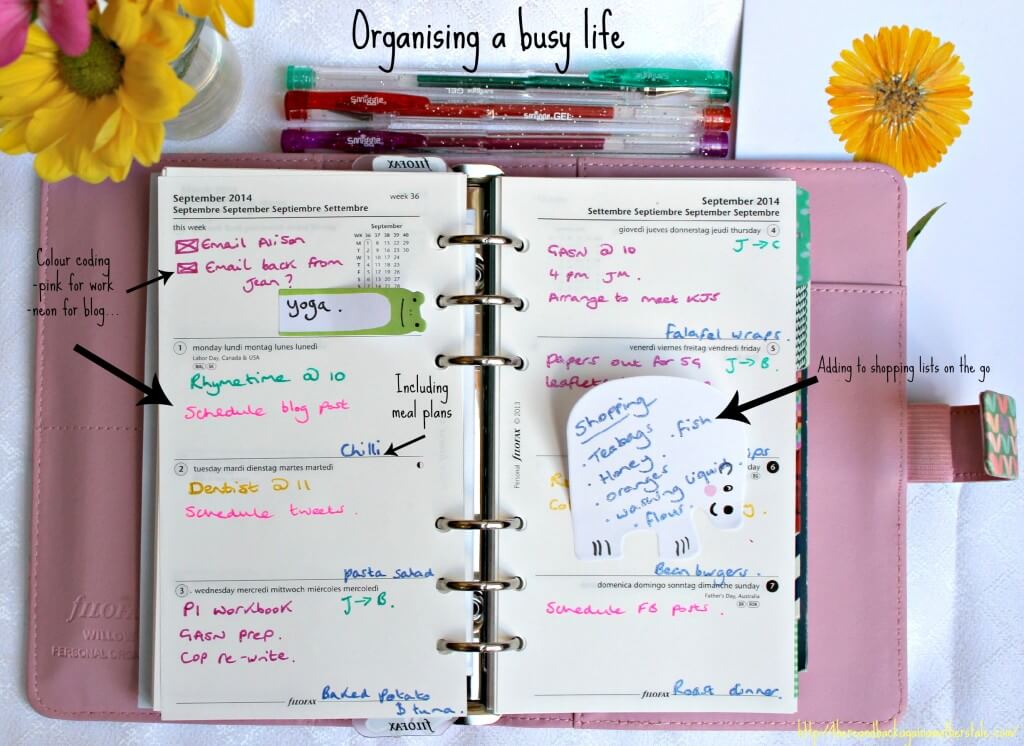 Organising a busy life
smiggle
GEL
smiggle
smiggle GEL
smiggle
FILOFAX
September 2014
week 36
Septembre September Septiembre Settembre
this week
September
WK 36 37 38 39 40
M 1 8 15 22 29
T 2 9 16 23 30
W 3 10 17 24
T 4 11 18 25
F 5 12 19 26
S 6 13 20 27
Email Alison
Email back from
Jean?
yoga.
Colour coding
-pink for work
-neon for blog...
1 monday lundi montag lunes lunedì
Labor Day, Canada & USA
Rhymetime @ 10
Schedule blog post
Chilli
Including
meal plans
2 tuesday mardi dienstag martes martedì
Dentist @ 11
Schedule tweets.
pasta salad
3 wednesday mercredi mittwoch miércoles mercoledì
PI workbook J → B.
GASN prep.
COP re-write.
Baked Potato
& tuna.
FILOFAX
FILOFAX
WILLOW
PERSONAL ORGA
FILOFAX
Personal FILOFAX © 2013
September 2014
Settembre Septiembre September Septembre
giovedì jueves donnerstag jeudi thursday 4
J → C
GASN @ 10
4 pm JM.
Arrange to meet KJS
Falafel wraps.
venerdì viernes freitag vendredi friday 5
Papers out for SG J → B.
leaflets
Adding to shopping lists on the go
Shopping
. Teabags
. fish
. Honey.
. oranges
. washing liquid
. flour.
ips
day 6
Bean burgers.
domenica domingo sonntag dimanche sunday 7
Father's Day, Australia
Schedule FB posts.
FILOFAX
Roast dinner.
http://thereandbackagainamotherstale.com/